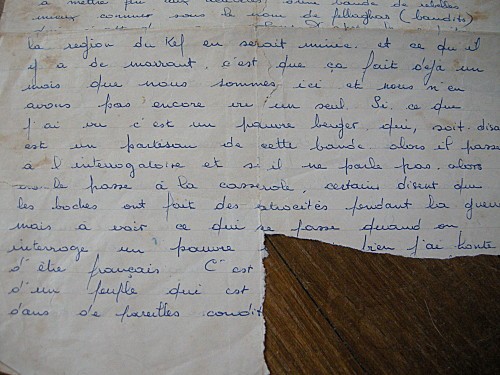 à mettre fin aux d'une bande de rebelles
mieux connus sous le nom de fellaghas (bandits)
La région du Kef en serait munie. et ce qu'il
y a de marrant, c'est que ça fait déjà un
mois que nous sommes ici et nous n'en
avons pas encore vu un seul. Si, ce que
j'ai vu c'est un pauvre berger qui, soit-disa
est un partisan de cette bande alors il passe
à l'interrogatoire et si il ne parle pas alors
on le passe à la casserole, certains disent que
les boches ont fait des atrocités pendant la guerre
mais à voir ce qui se passe quand on
interroge un pauvre bien j'ai honte
d'être français C'est
d'un peuple qui est
dans de pareilles condit